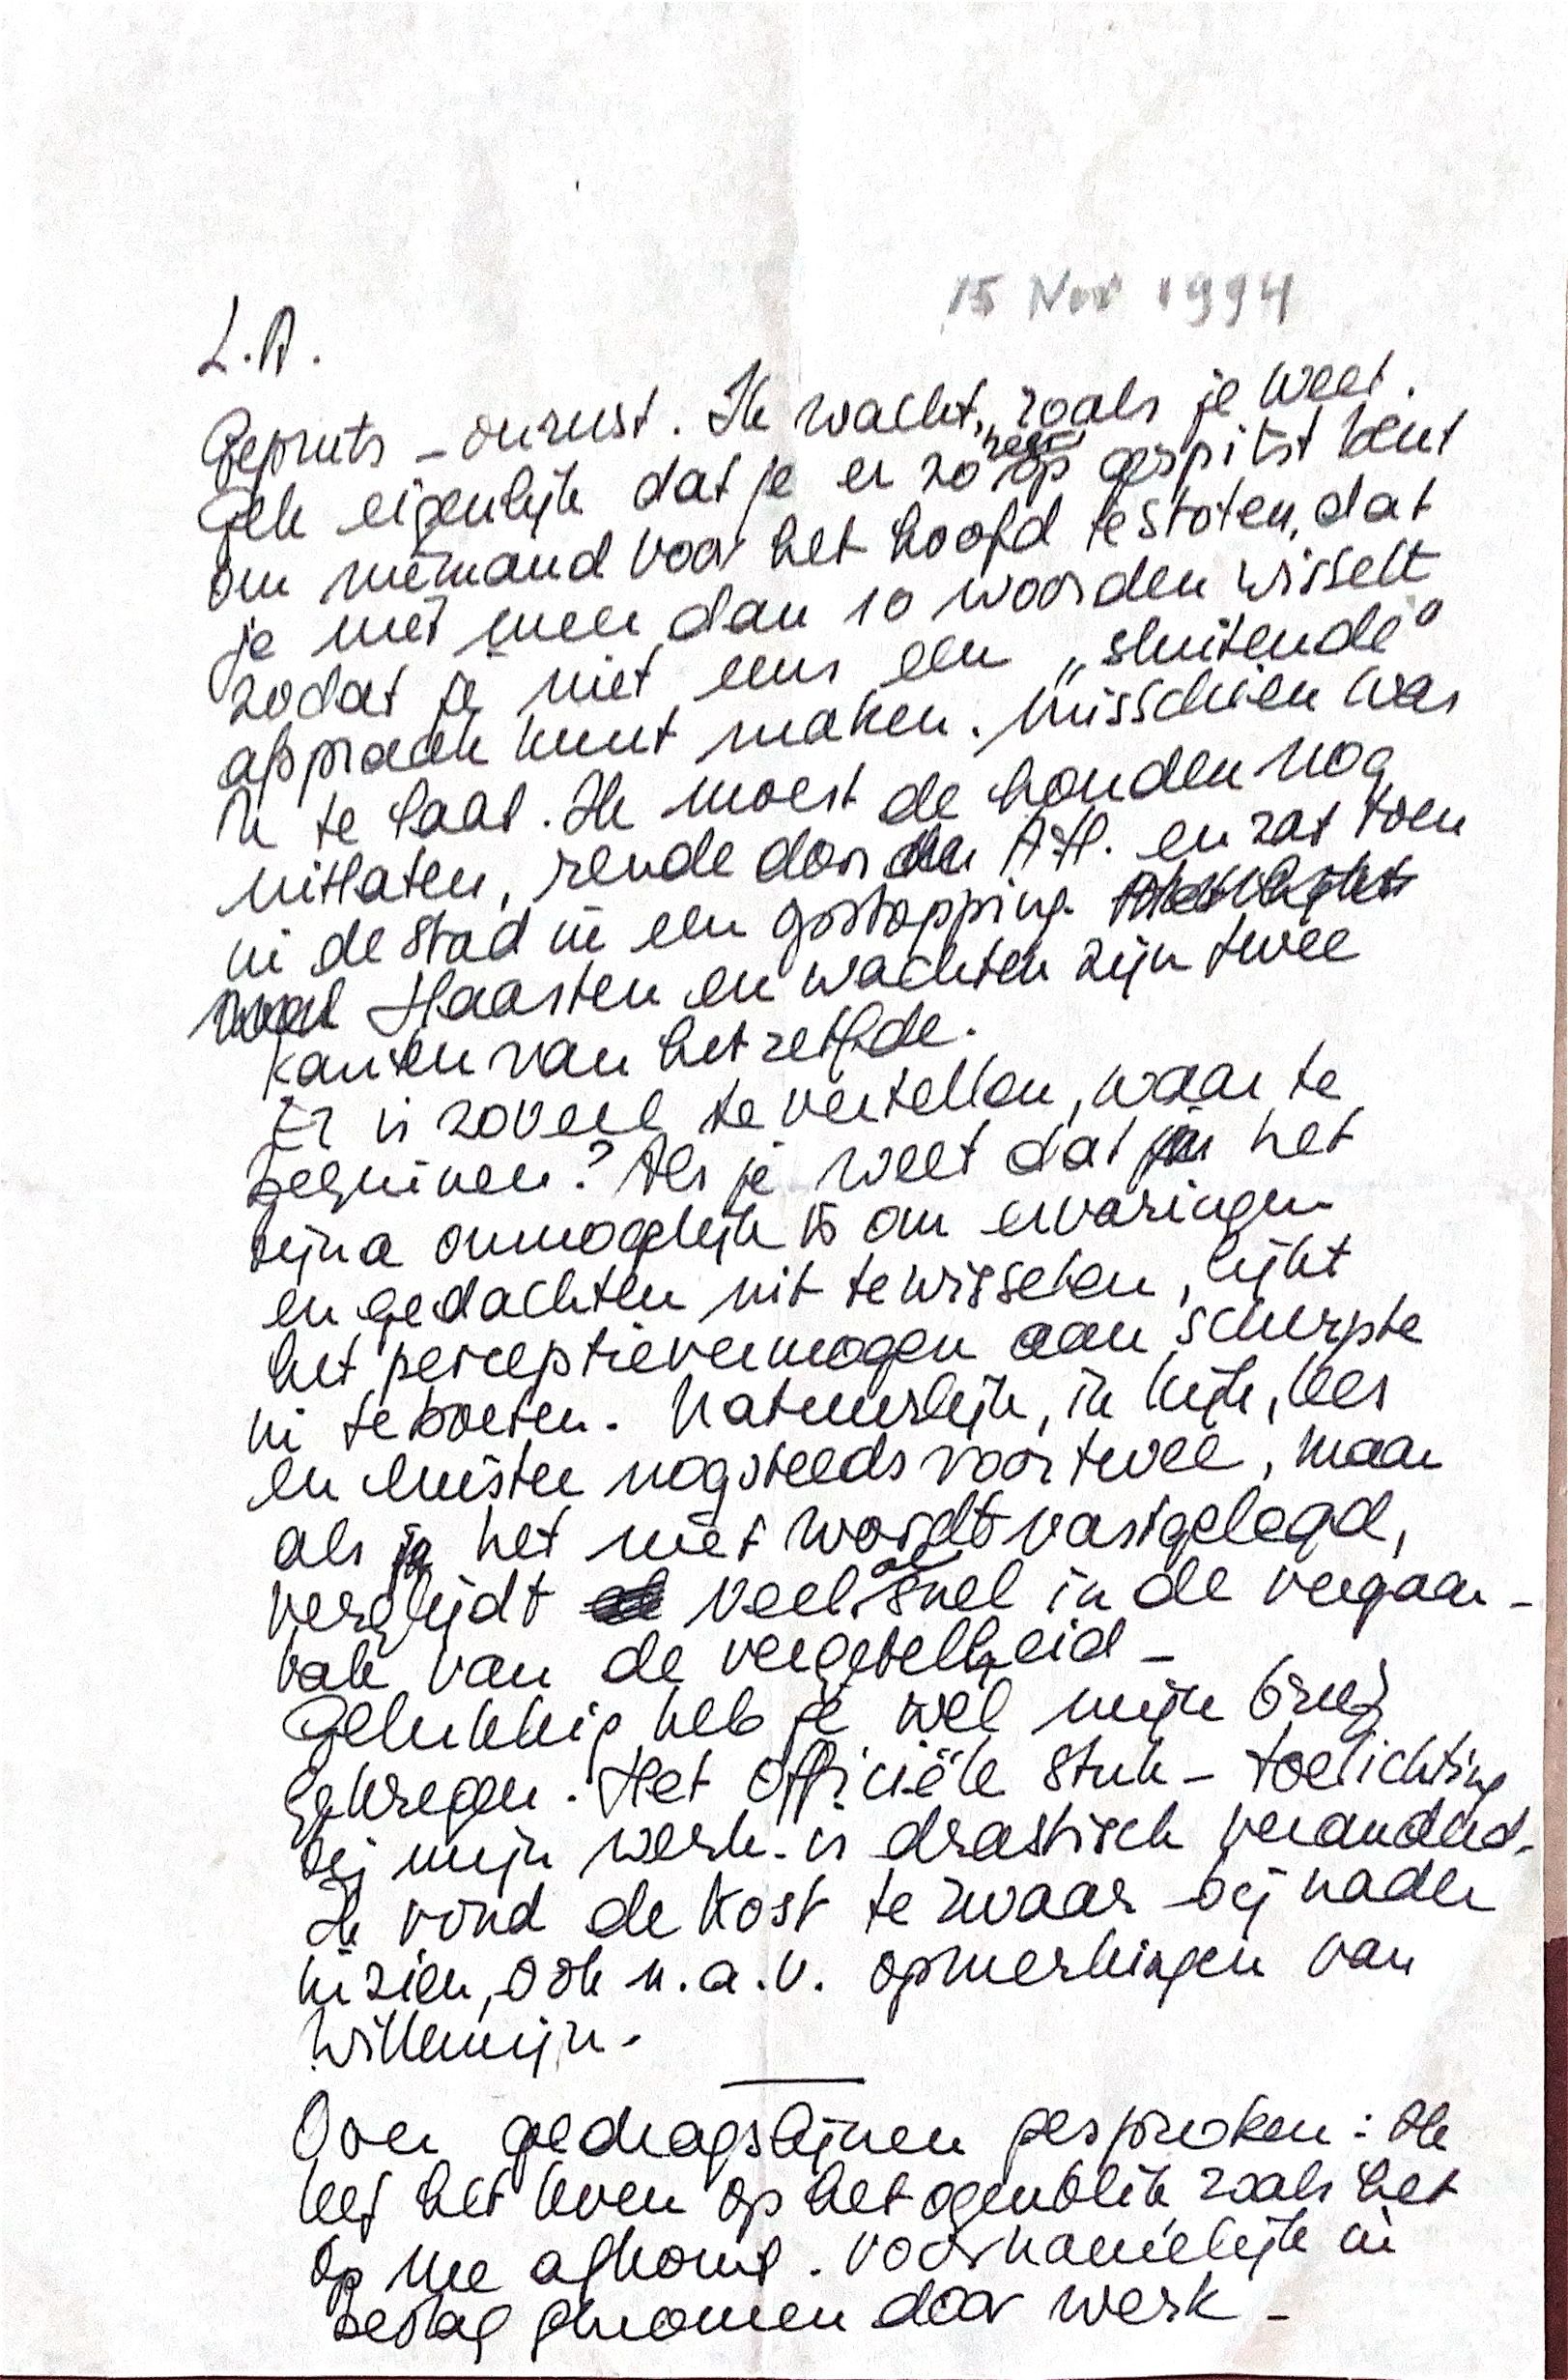 15 Nov 1994
L.A.
Gepruts - onrust. Ik wacht, zoals je weet.
Gek eigenlijk dat je er zo op gespitst bent
om niemand voor het hoofd te stoten, dat
je niet meer dan 10 woorden wisselt
zodat je niet eens een „sluitende"
afspraak kunt maken. Misschien was
ik te laat. Ik moest de honden nog
uitlaten, rende door de A.H. en zat toen
in de stad in een opstopping.
Haasten en wachten zijn twee
kanten van hetzelfde.
Er is zoveel te vertellen, waar te
beginnen? Als je weet dat het
bijna onmogelijk is om ervaringen
en gedachten uit te wisselen, lijkt
het perceptievermogen aan scherpte
in te boeten. Natuurlijk, ik kijk, lees
en luister nog steeds voor twee, maar
als het niet wordt vastgelegd,
verglijdt veel al snel in de vergaar-
bak van de vergetelheid -
Gelukkig heb je wel mijn brief
gekregen. Het officiële stuk - toelichting
bij mijn werk - is drastisch veranderd.
Ik vond de kost te zwaar bij nader
inzien, ook n.a.v. opmerkingen van
Willemijn -
Over gedragslijnen gesproken: Ik
leef het leven op het ogenblik zoals het
op me afkomt. Voornamelijk in
beslag genomen door werk -